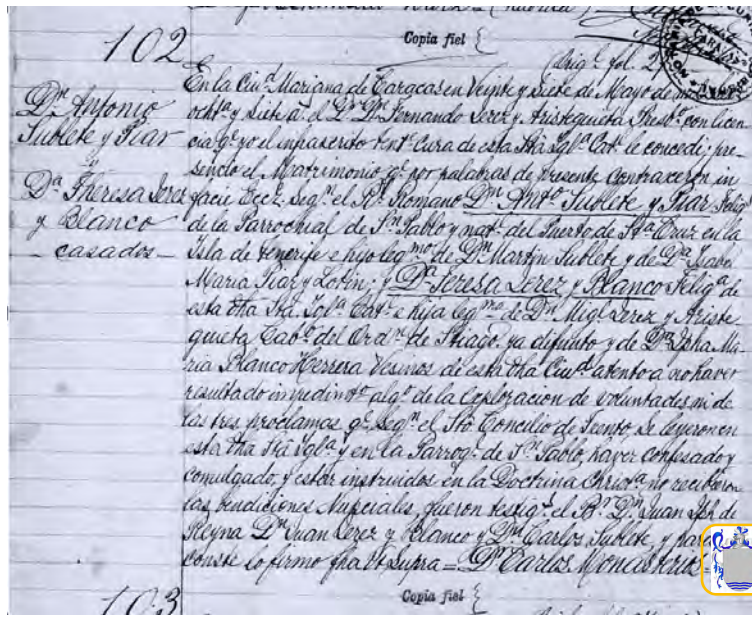 102
Copia fiel {
Orig.l fol. 2
Dn Antonio
Sublete y Piar
y
Da Theresa Jerez
y Blanco
_ casados _
En la Ciu.d Mariana de Caracas en Veinte y Siete de Mayo de
ocht.a y Siete a.s el D.r Dn Fernando Jerez y Aristeguieta Presb.o con licen
cia q.e yo el infrascrito ten.te Cura de esta Sta Igl.a Cat.l le concedi; pre
sencio el Matrimonio q.e por palabras de presente contraxeron in
facie Ecc.e Seg.n el R.l Romano Dn Anto Sublete y Piar Felig.s
de la Parrochial de Sn Pablo y nat.l del Puerto de Sta Cruz en la
Isla de Tenerife e hijo leg.mo de Dn Martin Sublete y de Da Isabel
Maria Piar y Lotin; y Da Teresa Jerez y Blanco Felig.a de
esta dha Sta Igl.a Cat.l e hija leg.ma de Dn Mig.l Jerez y Ariste-
guieta Cab.o del Ord.n de Stiago. ya difunto y de Da Jpha Ma
ria Blanco Herrera Vesinos de esta dha Ciu.d atento a no haver
resultado impedim.to alg.o de la Exploracion de voluntades ni de
las tres proclamas q.e seg.n el Sto Concilio de Trento, se leyeron en
esta dha Sta Igl.a y en la Parroq.l de Sn Pablo, haver confesado y
comulgado, y estar instruidos en la Doctrina Christ.a no recibieron
las bendiciones Nupciales, fueron testig.s el B.r Dn Juan Jph de
Reyna Dn Juan Jerez y Blanco y Dn Carlos Sublete, y para
conste lo firmo fha Ut Supra = Dr Carlos Monasterios =
103
Copia fiel {